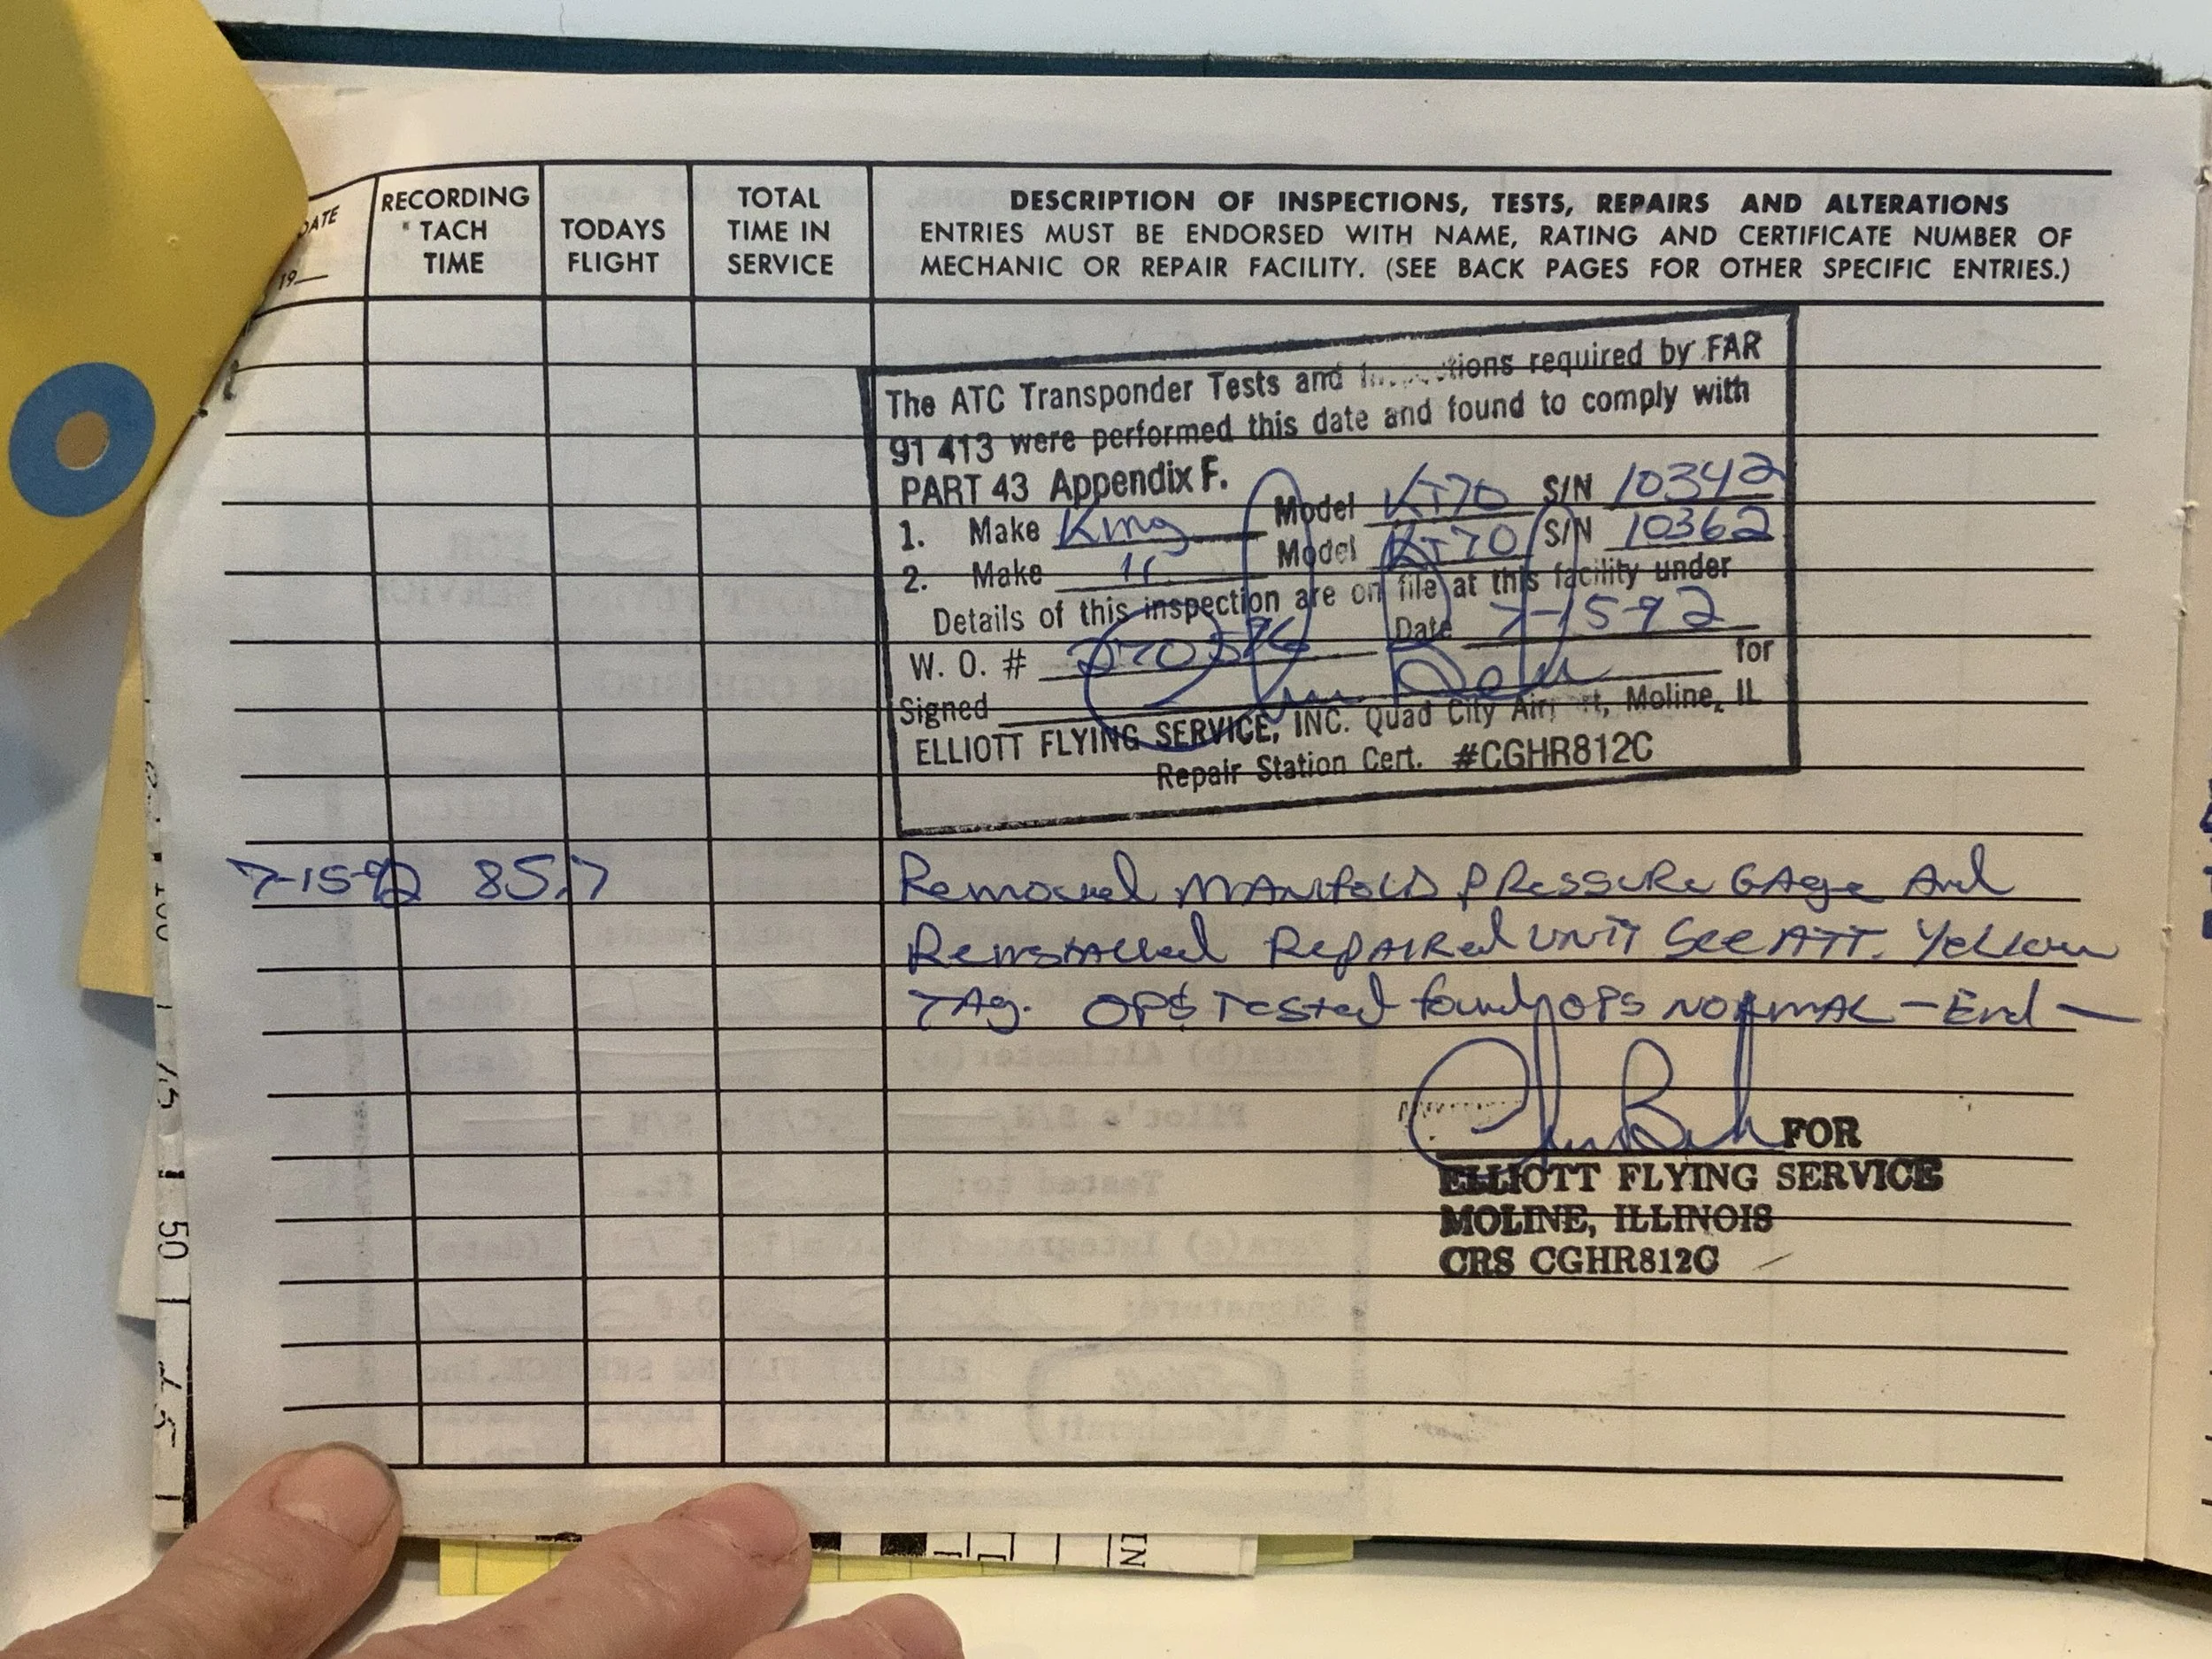 DATE
19
RECORDING
TACH
TIME
TODAYS
FLIGHT
TOTAL
TIME IN
SERVICE
DESCRIPTION OF INSPECTIONS, TESTS, REPAIRS AND ALTERATIONS
ENTRIES MUST BE ENDORSED WITH NAME, RATING AND CERTIFICATE NUMBER OF
MECHANIC OR REPAIR FACILITY. (SEE BACK PAGES FOR OTHER SPECIFIC ENTRIES.)
The ATC Transponder Tests and Inspections required by FAR
91 413 were performed this date and found to comply with
PART 43 Appendix F.
1. Make King Model KT70 S/N 10342
2. Make " Model KT70 S/N 10362
Details of this inspection are on file at this facility under
W. O. # Date 7-15-92
Signed for
ELLIOTT FLYING SERVICE, INC. Quad City Airport, Moline, IL
Repair Station Cert. #CGHR812C
7-15-92 85.7 Removed MANifoLD pRessuRe GAge And
ReinstAlled RepAiRed UNiT See ATT. Yellow
TAg. OPS Tested found OPS NORMAL — End —
FOR
ELLIOTT FLYING SERVICE
MOLINE, ILLINOIS
CRS CGHR812C
50